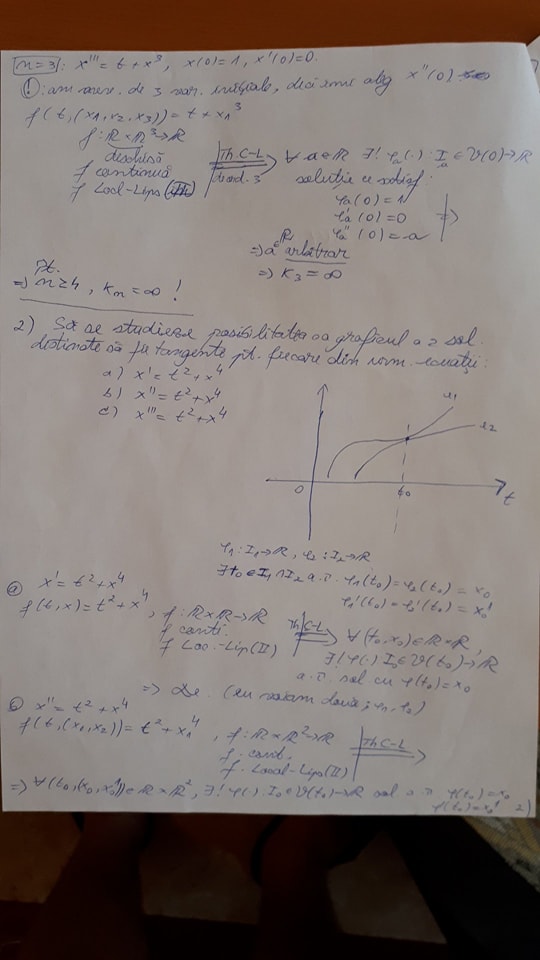 n=3 : x''' = t + x³, x(0)=1, x'(0)=0.
! : am nev. de 3 var. inițiale, deci imi aleg x''(0)
f(t,(x₁,x₂,x₃)) = t + x₁³
f : ℝ×ℝ³→ℝ
deschisă
f continuă
f Local-Lips (II)
Th. C-L
ord. 3
∀ a∈ℝ ∃! φₐ(·) : Iₐ ∈ 𝒱(0)→ℝ
soluție ce satisf:
φₐ(0) = 1
φₐ'(0) = 0
φₐ''(0) = a
⇒
⇒ a∈ℝ arbitrar
⇒ K₃ = ∞
pt.
⇒ n≥4, Kₙ = ∞ !
2) Să se studieze posibilitatea ca graficul a 2 sol.
distincte să fie tangente pt. fiecare din urm. ecuații:
a) x' = t² + x⁴
b) x'' = t² + x⁴
c) x''' = t² + x⁴
φ1
φ2
0
t₀
t
φ₁ : I₁→ℝ, φ₂ : I₂→ℝ
∃ t₀ ∈ I₁∩I₂ a.î. φ₁(t₀) = φ₂(t₀) = x₀
φ₁'(t₀) = φ₂'(t₀) = x₀¹
a x' = t² + x⁴
f(t,x) = t² + x⁴, f : ℝ×ℝ→ℝ
f cont.
f Loc.-Lip (II)
Th. C-L
∀ (t₀,x₀)∈ℝ×ℝ,
∃! φ(·) I₀∈𝒱(t₀)→ℝ
a.î. sol cu φ(t₀) = x₀
⇒ (eu aveam două: φ₁, φ₂)
b x'' = t² + x⁴
f(t,(x₁,x₂)) = t² + x₁⁴, f : ℝ×ℝ²→ℝ
f cont.
f Local-Lips (II)
Th C-L
⇒ ∀ (t₀,(x₀,x₀¹))∈ℝ×ℝ², ∃! φ(·) I₀∈𝒱(t₀)→ℝ sol a.î. φ(t₀) = x₀
φ'(t₀) = x₀¹
2)